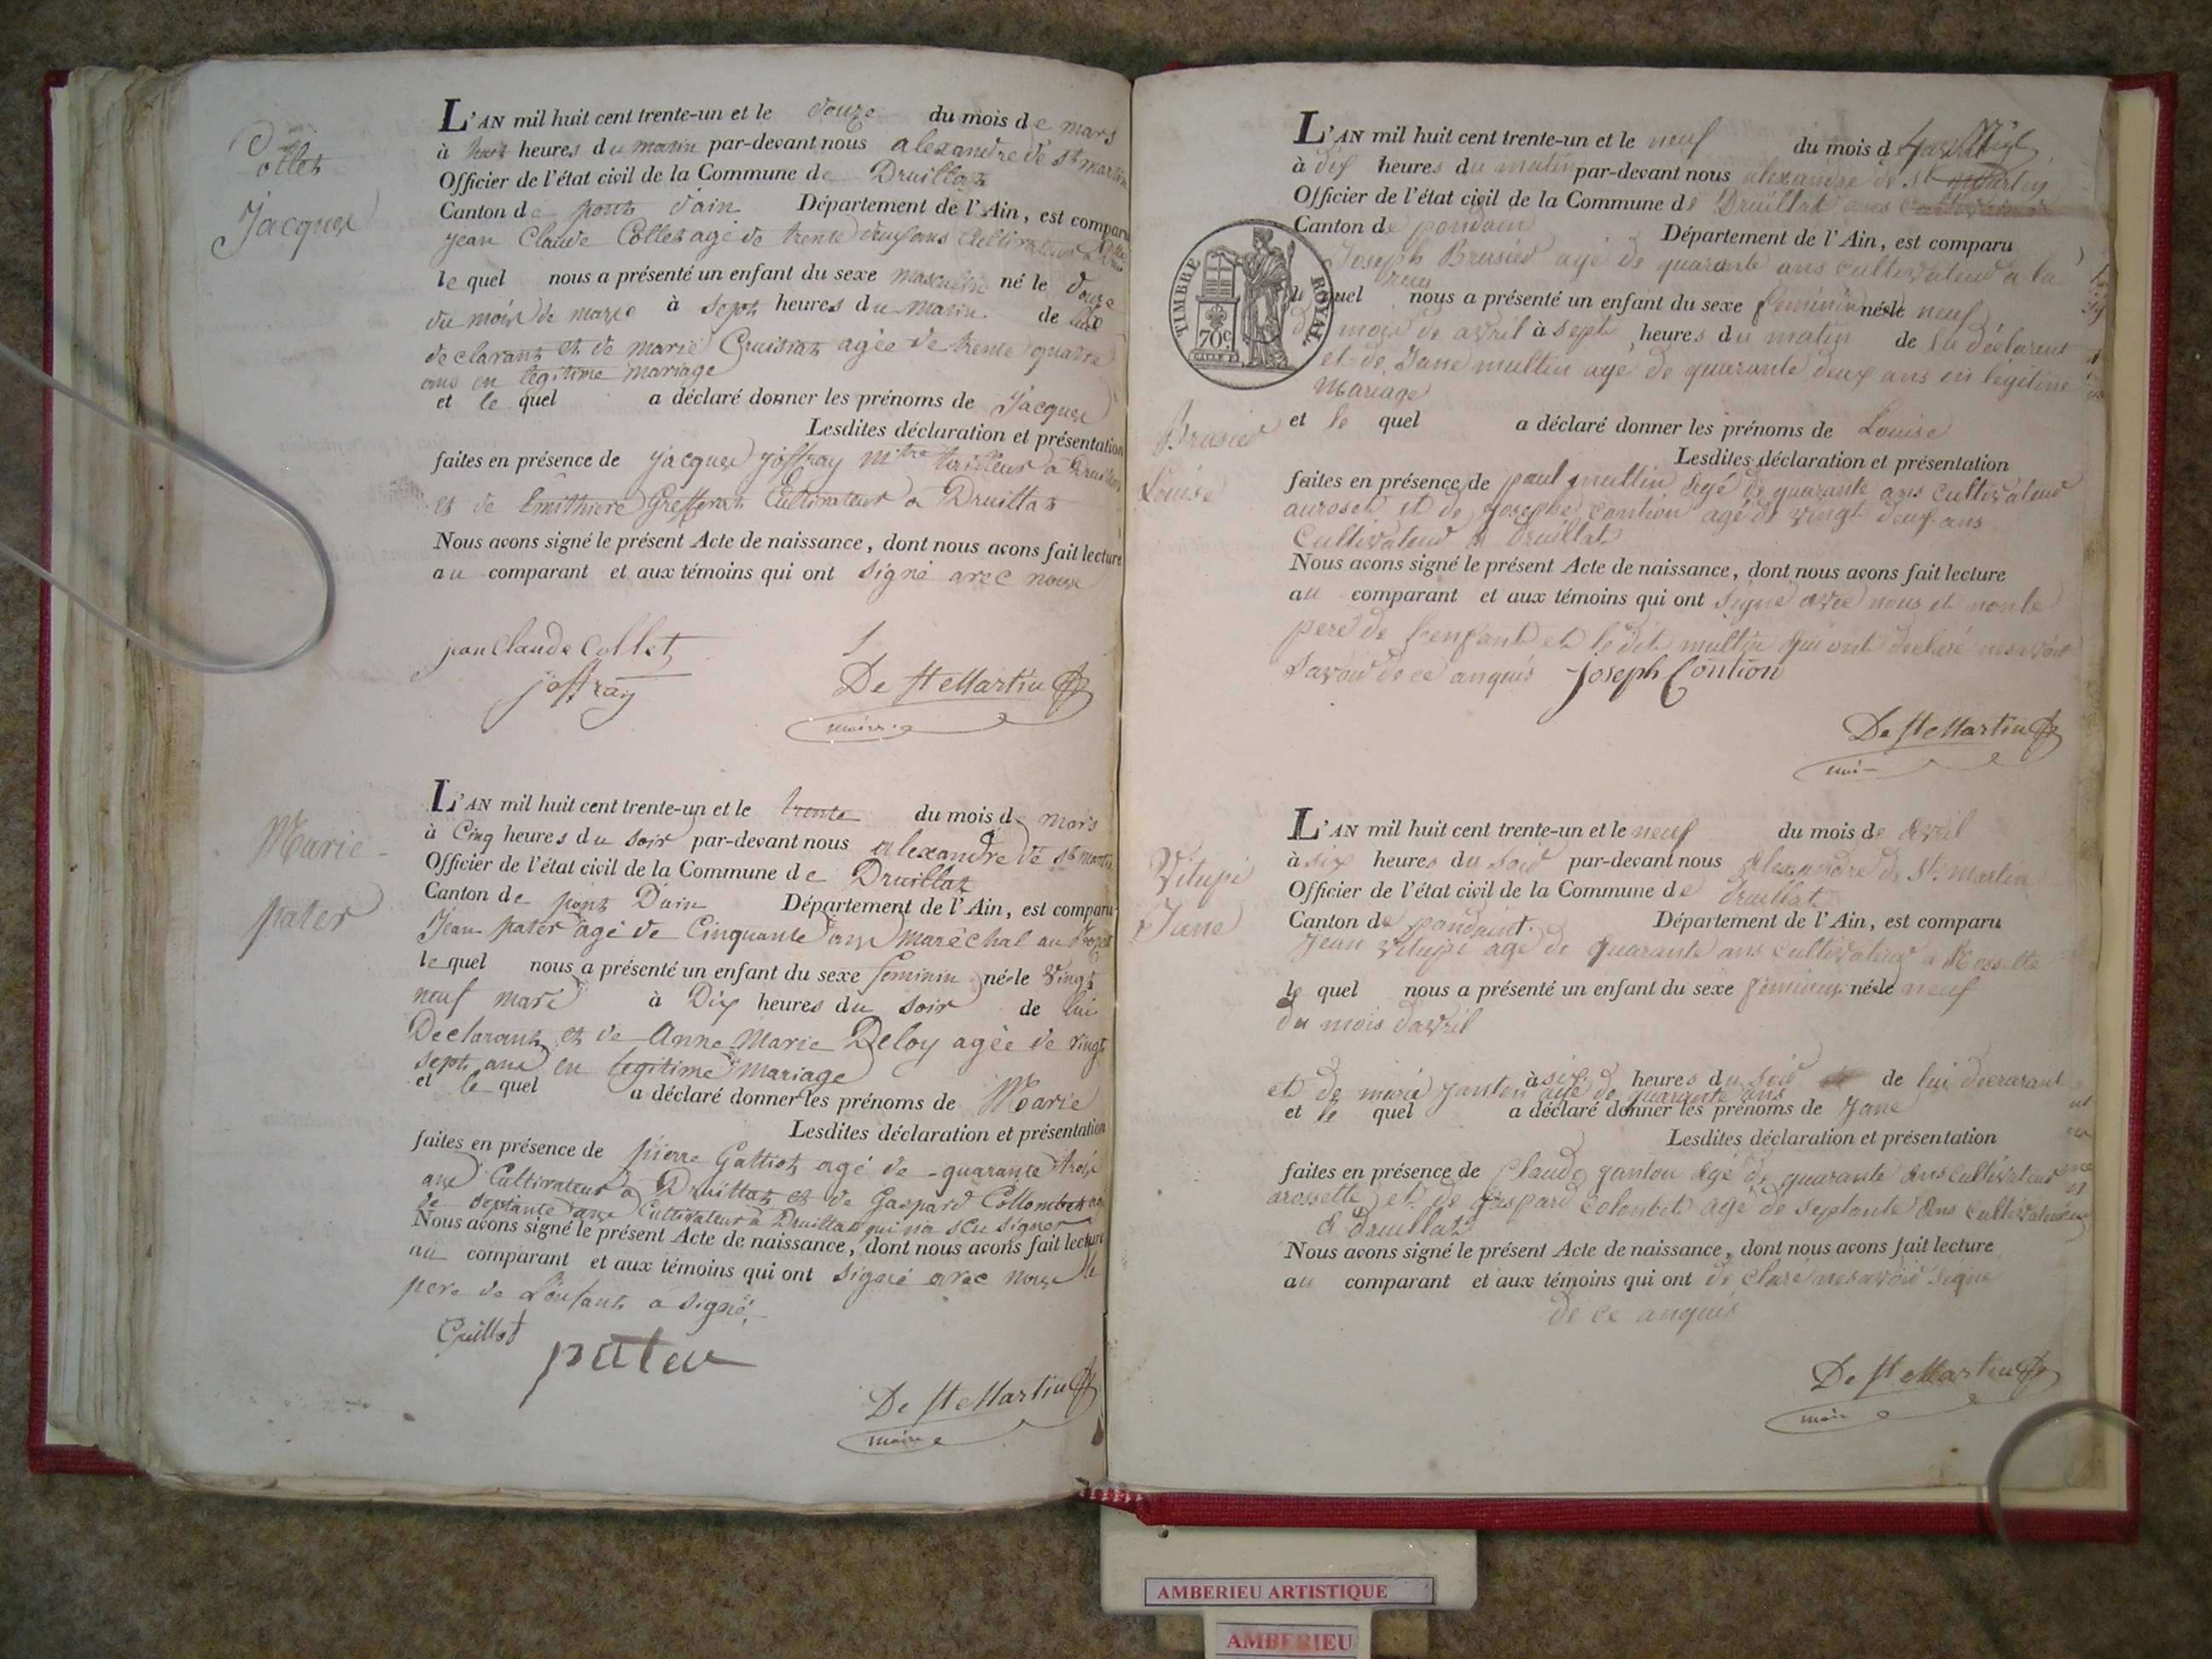 Collet
Jacques
L'AN mil huit cent trente-un et le douze du mois de mars
à huit heures du matin par-devant nous alexandre de st martin
Officier de l'état civil de la Commune de Druillat
Canton de pont dain Département de l'Ain, est comparu
jean Claude Collet agé de trente deux ans Cultivateur a
le quel nous a présenté un enfant du sexe masculin né le douze
du mois de mars à sept heures du matin de lui
declarant et de marie Cruisiat agée de trente quatre
ans en legitime mariage
et le quel a déclaré donner les prénoms de Jacques
Lesdites déclaration et présentation
faites en présence de jacques joffray mtre tailleur a Druillat
et de Greffirat Cultivateur a Druillat
Nous avons signé le présent Acte de naissance, dont nous avons fait lecture
au comparant et aux témoins qui ont signé avec nous
jean Claude Collet
joffray
De St Martin
maire
Marie
pater
L'AN mil huit cent trente-un et le trente du mois de mars
à Cinq heures du soir par-devant nous alexandre de st martin
Officier de l'état civil de la Commune de Druillat
Canton de pont Dain Département de l'Ain, est comparu
Jean pater agé de Cinquante ans maréchal au
le quel nous a présenté un enfant du sexe feminin née le vingt
neuf mars à Dix heures du soir de lui
Declarant et de Anne Marie Deloy agée de vingt
sept ans en legitime mariage
et le quel a déclaré donner les prénoms de Marie
Lesdites déclaration et présentation
faites en présence de pierre Guttiot agé de quarante trois
ans Cultivateur a Druillat et de Gaspard Collombet agé
de septante ans Cultivateur a Druillat qui na scu signer
Nous avons signé le présent Acte de naissance, dont nous avons fait lecture
au comparant et aux témoins qui ont signé avec nous le
pere de L'enfant a signé
pater
De St Martin
maire
TIMBRE ROYAL
70c
Brusied
Louise
L'AN mil huit cent trente-un et le neuf du mois d
à dix heures du matin par-devant nous alexandre de st martin
Officier de l'état civil de la Commune de Druillat
Canton de pondain Département de l'Ain, est comparu
Joseph Brusied agé de quarante ans cultivateur a la
le quel nous a présenté un enfant du sexe feminin née le neuf
du mois de avril à sept heures du matin de lui déclarent
et de Jane multin agé de quarante deux ans en legitime
mariage
et le quel a déclaré donner les prénoms de Louise
Lesdites déclaration et présentation
faites en présence de paul multin agé de quarante ans cultivateur
auroset et de Josephe contion agé de vingt deux ans
Cultivateur a druillat
Nous avons signé le présent Acte de naissance, dont nous avons fait lecture
au comparant et aux témoins qui ont signé avec nous et non le
pere de l'enfant et le dit multin qui ont declaré
de ce anquis Joseph Contion
De St Martin
Vitupi
Jane
L'AN mil huit cent trente-un et le neuf du mois de avril
à six heures du soir par-devant nous alexandre de St martin
Officier de l'état civil de la Commune de druillat
Canton de Département de l'Ain, est comparu
Jean vitupi agé de quarante ans cultivateur a Rossette
le quel nous a présenté un enfant du sexe feminin née le neuf
du mois davril
à six heures du soir de lui
et de marie janton agé de quarante ans
et le quel a déclaré donner les prénoms de Jane
Lesdites déclaration et présentation
faites en présence de Claude janton agé de quarante ans cultivateur
arossette et de gaspard colonbet agé de septante ans cultivateur
a druillat
Nous avons signé le présent Acte de naissance, dont nous avons fait lecture
au comparant et aux témoins qui ont de claré signé
de ce anquis
De St Martin
maire
AMBERIEU ARTISTIQUE
AMBERIEU